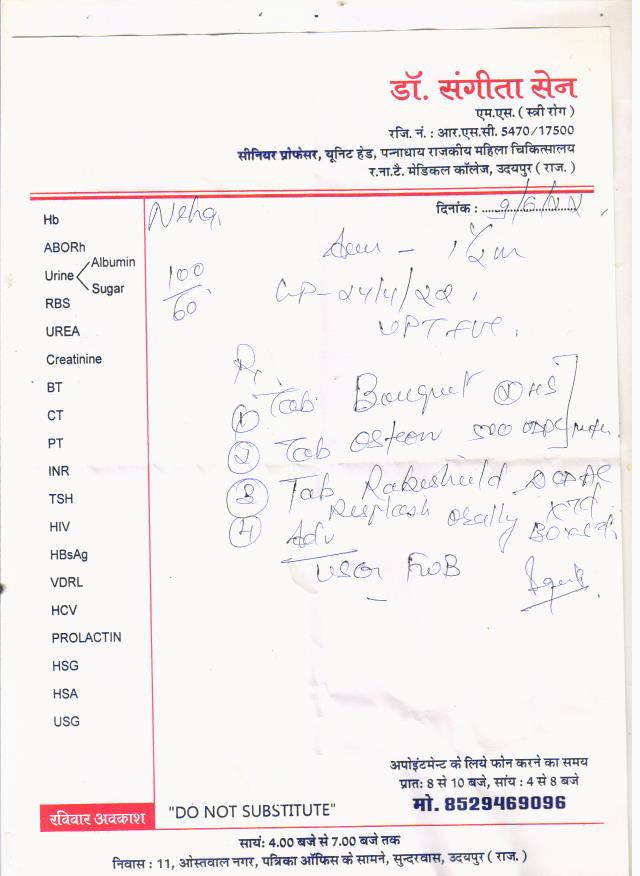 डॉ. संगीता सेन
एम.एस. ( स्त्री रोग )
रजि. नं. : आर.एस.सी. 5470/17500
सीनियर प्रोफेसर, यूनिट हेड, पन्नाधाय राजकीय महिला चिकित्सालय
र.ना.टै. मेडिकल कॉलेज, उदयपुर ( राज. )
दिनांक :
Neha
Hb
ABORh
Urine Albumin
Sugar
RBS
UREA
Creatinine
BT
CT
PT
INR
TSH
HIV
HBsAg
VDRL
HCV
PROLACTIN
HSG
HSA
USG
100
60
24/4/22
UPT +ve
Rx
① Tab Bouquet HS
② Tab Osteon 500
③ Tab
④ orally
Adv
USG FWB
अपोइंटमेन्ट के लिये फोन करने का समय
प्रातः 8 से 10 बजे, सांय : 4 से 8 बजे
मो. 8529469096
रविवार अवकाश
"DO NOT SUBSTITUTE"
सायं: 4.00 बजे से 7.00 बजे तक
निवास : 11, ओस्तवाल नगर, पत्रिका ऑफिस के सामने, सुन्दरवास, उदयपुर ( राज. )